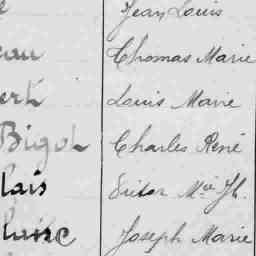 Jean Louis
eau Thomas Marie
ert Louis Marie
Bigot Charles René
lais Victor Mie Jh.
Joseph Marie